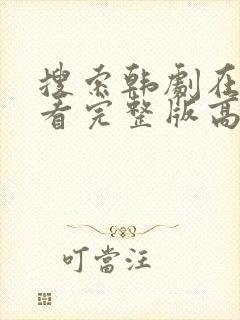 搜索韩劇在
看完整版高
叮當汪